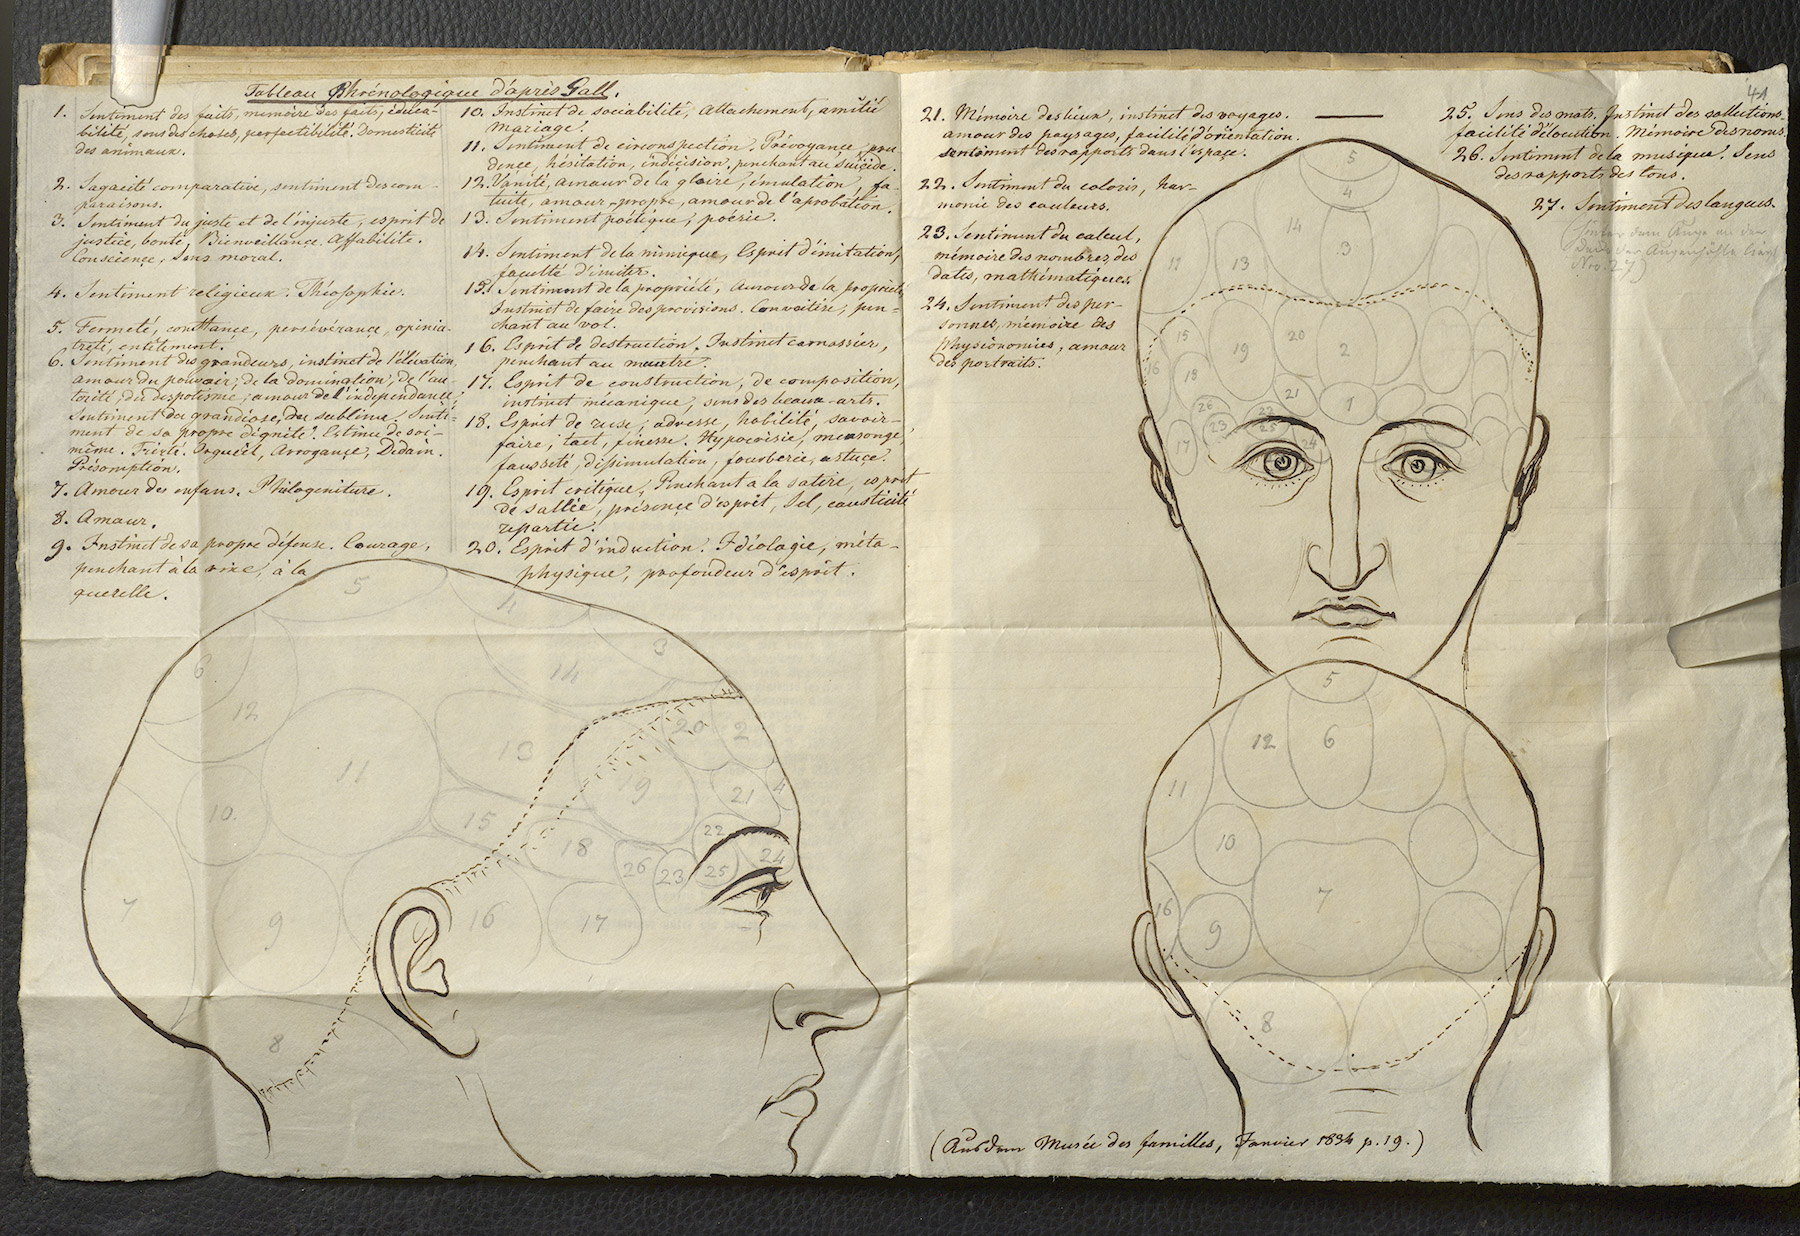 41
Tableau Phrénologique d'après Gall.
1. Sentiment des faits, mémoire des faits, éduca-
bilité, sens des choses, perfectibilité. Domesticité
des animaux.
2. Sagacité comparative, sentiment des com-
paraisons.
3. Sentiment du juste et de l'injuste, esprit de
justice, bonté, Bienveillance. Affabilité.
Conscience, sens moral.
4. Sentiment religieux. Théosophie.
5. Fermeté, constance, persévérance, opinia-
treté, entêtement.
6. Sentiment des grandeurs, instinct de l'élévation,
amour du pouvoir, de la domination, de l'au-
torité, du despotisme, amour de l'independance,
Sentiment du grandiose, du sublime. Senti-
ment de sa propre dignité. Estime de soi-
même. Fierté. Orgueil, Arrogance, Dédain.
Présomption.
7. Amour des enfans. Philogeniture.
8. Amour.
9. Instinct de sa propre défense. Courage,
penchant à la rixe, à la
querelle.
10. Instinct de sociabilité, Attachement, amitié
mariage.
11. Sentiment de circonspection. Prévoyance, pru-
dence, hésitation, indécision, penchant au suicide.
12. Vanité, amour de la gloire, émulation, fa-
tuité, amour-propre, amour de l'aprobation.
13. Sentiment poétique, poésie.
14. Sentiment de la mimique, Esprit d'imitation,
faculté d'imiter.
15. Sentiment de la propriété, amour de la propriété
Instinct de faire des provisions. Convoitise, pen-
chant au vol.
16. Esprit de destruction. Instinct carnassier,
penchant au meurtre.
17. Esprit de construction, de composition,
instinct mécanique, sens des beaux-arts.
18. Esprit de ruse, adresse, habilité, savoir-
faire, tact, finesse. Hypocrisie, mensonge,
fausseté, dissimulation, fourberie, astuce.
19. Esprit critique, Penchant a la satire, esprit
de saillie, présence d'esprit, Sel, causticité
repartie.
20. Esprit d'induction. Idéologie, méta-
physique, profondeur d'esprit.
21. Mémoire des lieux, instinct des voyages.
amour des paysages, facilité d'orientation.
sentiment des rapports dans l'espace.
22. Sentiment du coloris, har-
monie des couleurs.
23. Sentiment du calcul,
mémoire des nombres, des
dates, mathématiques.
24. Sentiment des per-
sonnes, mémoire des
physionomies, amour
des portraits.
25. Sens des mots. Instinct des collections.
facilité d'élocution. Mémoire des noms.
26. Sentiment de la musique. Sens
des rapports des tons.
27. Sentiment des langues.
der Augenhöhle
Nro. 27)
5
4
14
3
11
13
15
19
20
2
16
18
21
1
26
23
22
25
24
17
5
4
3
6
14
12
20
2
13
11
19
21
4
10
15
22
18
26
23
25
24
7
9
16
17
8
5
12
6
11
10
7
16
9
8
(Aus dem Musée des familles, Janvier 1834 p. 19.)